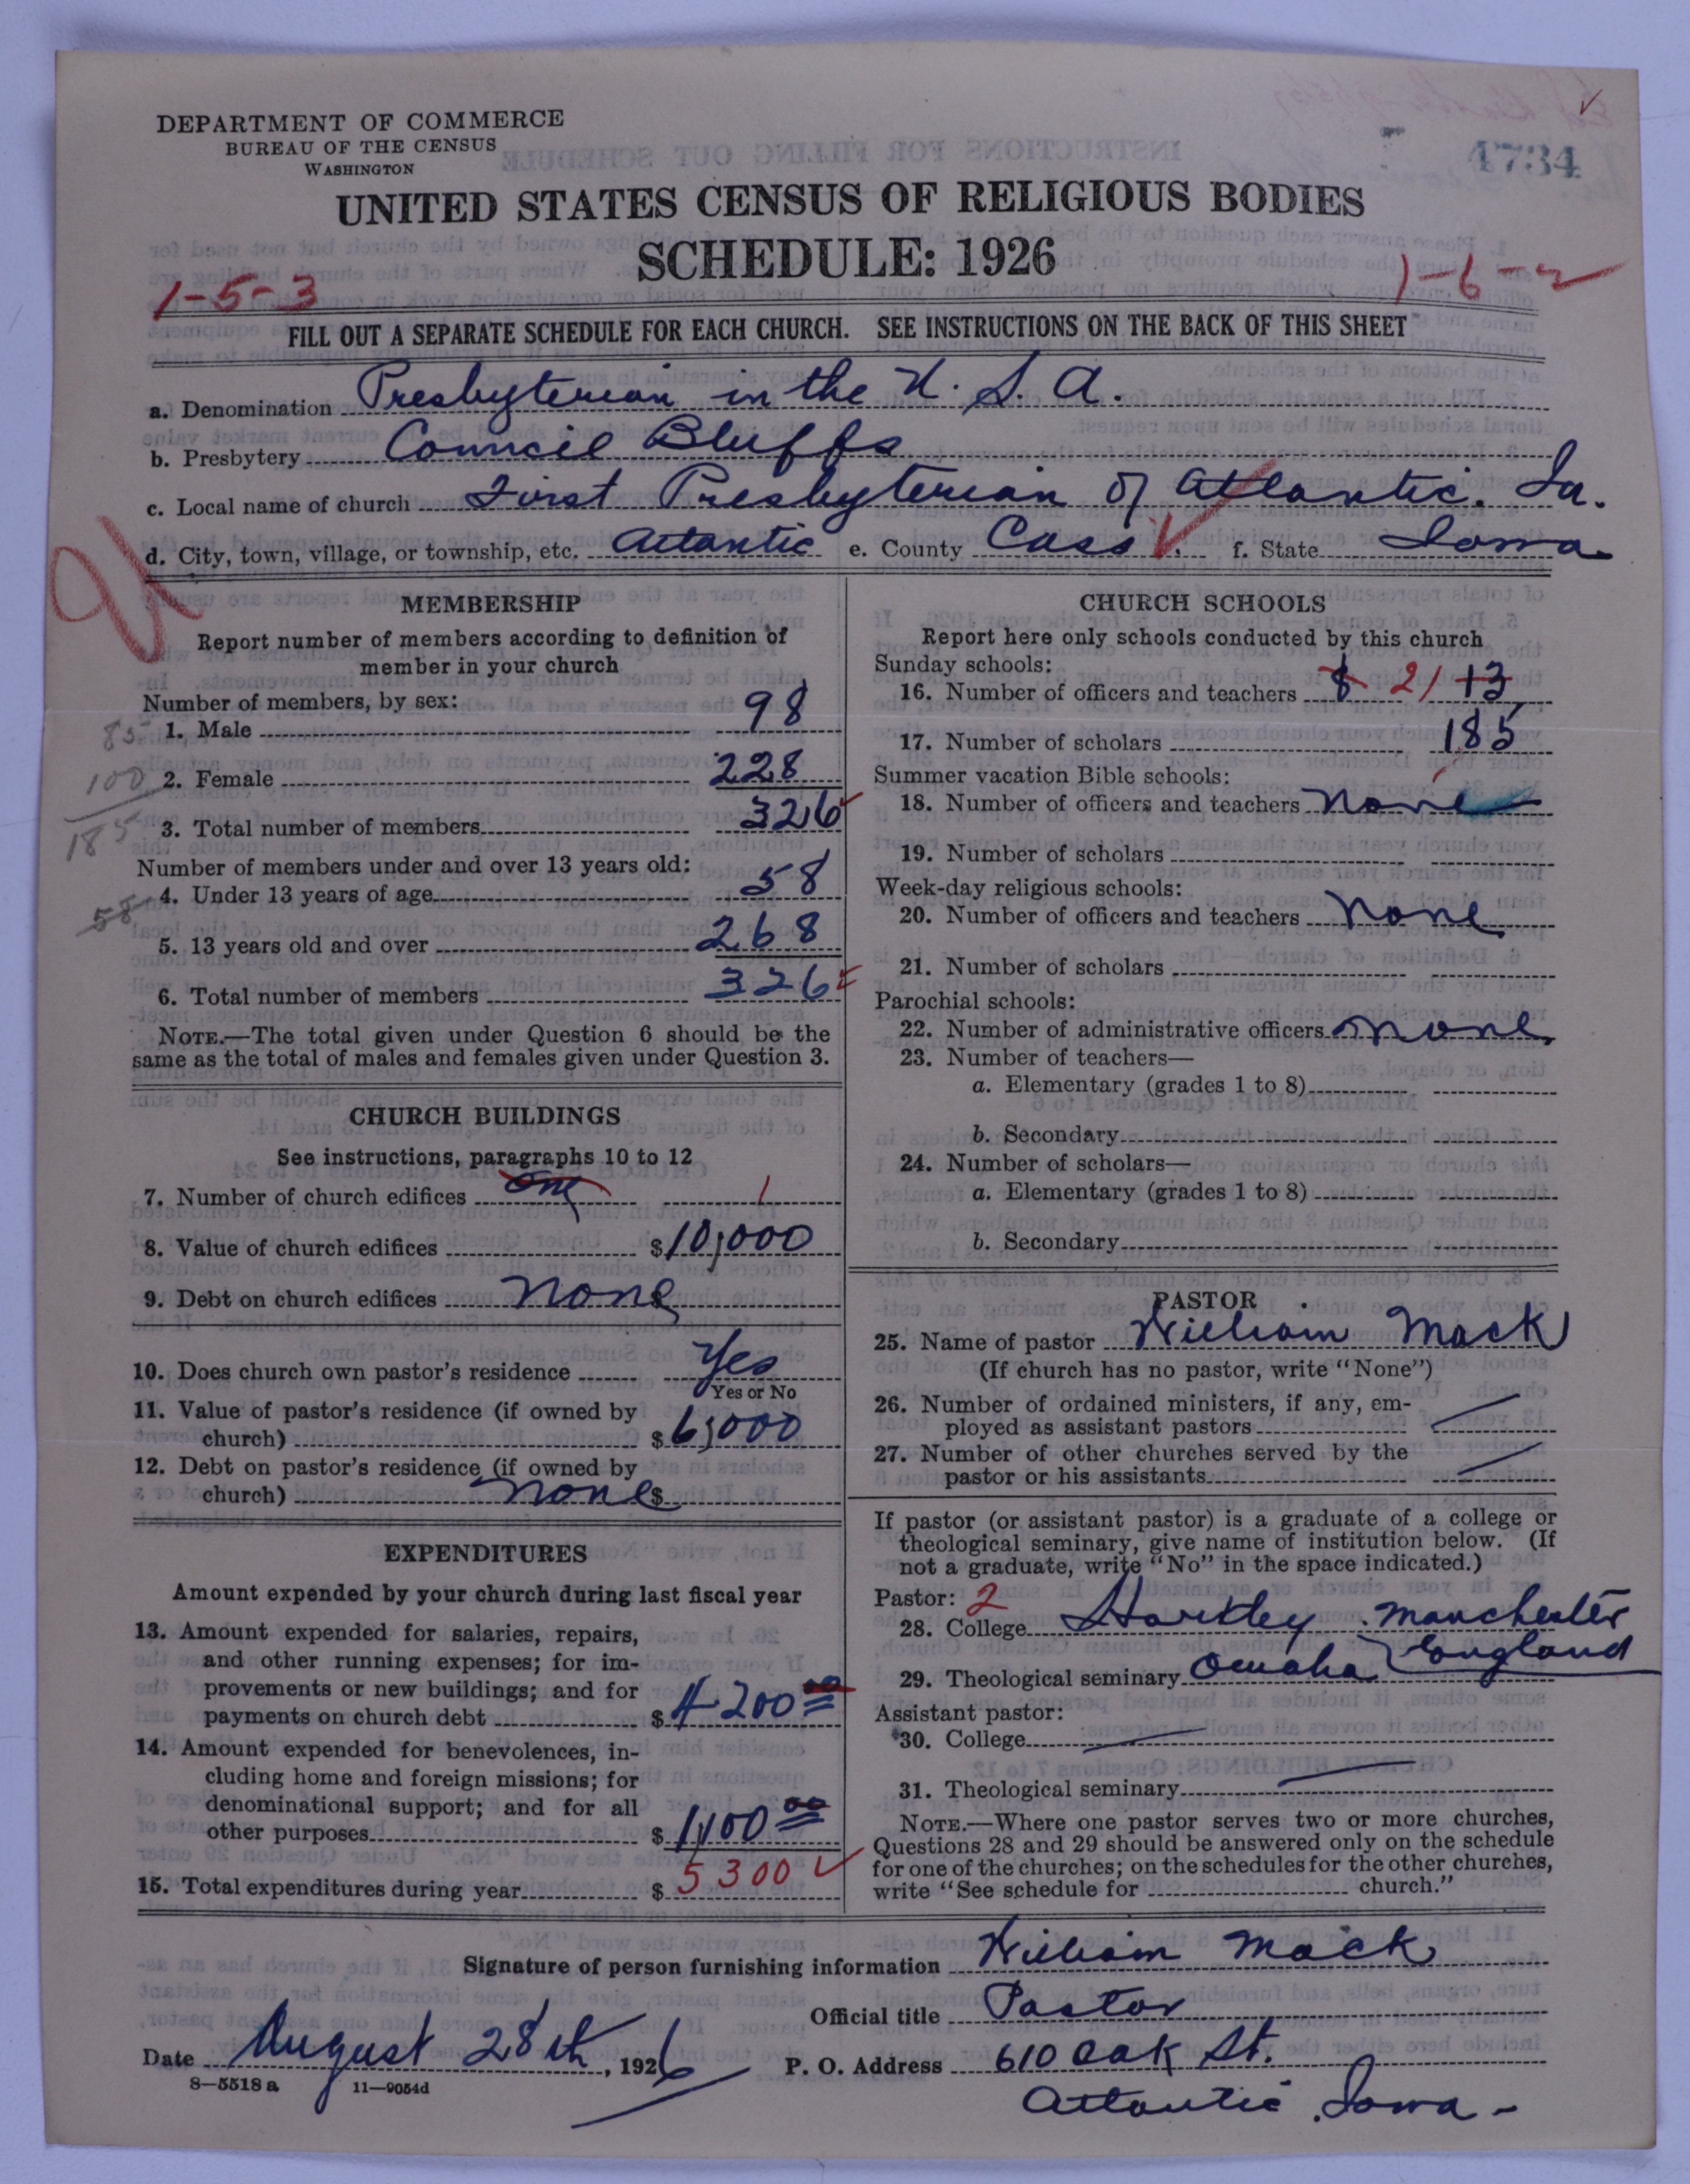 DEPARTMENT OF COMMERCE
BUREAU OF THE CENSUS
WASHINGTON
4734
UNITED STATES CENSUS OF RELIGIOUS BODIES
SCHEDULE: 1926
1-5-3
1-6-2
FILL OUT A SEPARATE SCHEDULE FOR EACH CHURCH. SEE INSTRUCTIONS ON THE BACK OF THIS SHEET
a. Denomination Presbyterian in the U. S. A.
b. Presbytery Council Bluffs
c. Local name of church First Presbyterian of Atlantic. Ia.
d. City, town, village, or township, etc. Atlantic e. County Cass f. State Iowa
MEMBERSHIP
Report number of members according to definition of
member in your church
Number of members, by sex:
85
1. Male 98
100
2. Female 228
185
3. Total number of members 326
Number of members under and over 13 years old:
58
4. Under 13 years of age 58
5. 13 years old and over 268
6. Total number of members 326
NOTE.—The total given under Question 6 should be the
same as the total of males and females given under Question 3.
CHURCH BUILDINGS
See instructions, paragraphs 10 to 12
7. Number of church edifices one 1
8. Value of church edifices $10,000
9. Debt on church edifices None $
10. Does church own pastor's residence Yes
Yes or No
11. Value of pastor's residence (if owned by
church) $6,000
12. Debt on pastor's residence (if owned by
church) None $
EXPENDITURES
Amount expended by your church during last fiscal year
13. Amount expended for salaries, repairs,
and other running expenses; for im-
provements or new buildings; and for
payments on church debt $4200 00
14. Amount expended for benevolences, in-
cluding home and foreign missions; for
denominational support; and for all
other purposes $1,100 00
15. Total expenditures during year $5300
CHURCH SCHOOLS
Report here only schools conducted by this church
Sunday schools:
16. Number of officers and teachers 8 21 13
17. Number of scholars 185
Summer vacation Bible schools:
18. Number of officers and teachers None
19. Number of scholars
Week-day religious schools:
20. Number of officers and teachers None
21. Number of scholars
Parochial schools:
22. Number of administrative officers None
23. Number of teachers—
a. Elementary (grades 1 to 8)
b. Secondary
24. Number of scholars—
a. Elementary (grades 1 to 8)
b. Secondary
PASTOR
25. Name of pastor William Mack
(If church has no pastor, write "None")
26. Number of ordained ministers, if any, em-
ployed as assistant pastors
27. Number of other churches served by the
pastor or his assistants
If pastor (or assistant pastor) is a graduate of a college or
theological seminary, give name of institution below. (If
not a graduate, write "No" in the space indicated.)
Pastor: 2
28. College Hartley Manchester
England
29. Theological seminary Omaha
Assistant pastor:
30. College
31. Theological seminary
NOTE.—Where one pastor serves two or more churches,
Questions 28 and 29 should be answered only on the schedule
for one of the churches; on the schedules for the other churches,
write "See schedule for church."
Signature of person furnishing information William Mack
Official title Pastor
Date August 28th, 1926 P. O. Address 610 Oak St.
8—5518 a 11—9054d
Atlantic Iowa-